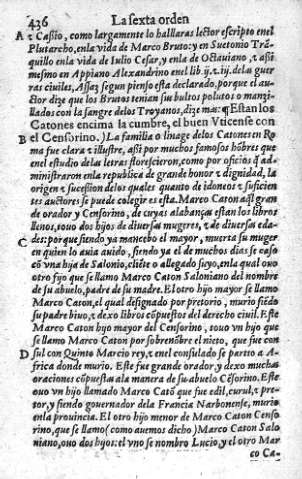 436 La sexta orden
A τ Cassio, como largamente lo hallaras lector escripto enel
Plutarcho, enla vida de Marco Bruto: y en Suetonio Trã-
quillo enla vida de Iulio Cesar, y enla de Octauiano, τ assi
mesmo en Appiano Alexandrino enel lib.ij.τ.iij.dela guer
ras ciuiles, Assaz segun pienso esta declarado, porque el au-
ctor dize que los Brutos tenian sus bultos polutos o manzi-
llados con la sangre delos Troyanos, dize mas: Estan los
Catones encima la cumbre, el buen Vticense con
B el Censorino.) La familia o linage delos Catones en Ro
ma fue clara τ illustre, assi por muchos famosos hõbres que
enel estudio delas letras florescieron, como por oficios q̃ ad-
ministraron enla republica de grande honor τ dignidad, la
origen τ sucession delos quales quanto de idoneos τ suficien
tes auctores se puede colegir es esta. Marco Caton aq̃l gran
de orador y Censorino, de cuyas alabanças estan los libros
llenos, touo dos hijos de diuersas mugeres, τ de diuersas eda-
C des: porque siendo ya mancebo el mayor, muerta su muger
en quien lo auia auido, siendo ya el de muchos dias se caso
cõ vna hija de Salonio, cliẽte o allegado suyo, enla qual ouo
otro fijo que se llamo Marco Caton Saloniano del nombre
de su abuelo, padre de su madre. El otro hijo mayor se llamo
Marco Caton, el qual designado por pretorio, murio siẽdo
su padre biuo, τ dexo libros cõpuestos del derecho ciuil. Este
Marco Caton hijo mayor del Censorino, touo vn hijo que
se llamo Marco Caton por sobrenõbre el nieto, que fue con
D sul con Quinto Marcio rey, τ enel consulado se partio a Af-
frica donde murio. Este fue grande orador, y dexo muchas
oraciones cõpuestas ala manera de su abuelo Cẽsorino. Este
ouo vn hijo llamado Marco Catõ que fue edil, curul, τ pre-
tor, y siendo gouernador dela Francia Narbonense, murio
enla prouincia. El otro hijo menor de Marco Caton Censo
rino, que se llamo (como auemos dicho) Marco Caton Salo
niano, ouo dos hijos: el vno se nombro Lucio, y el otro Mar
co Ca-